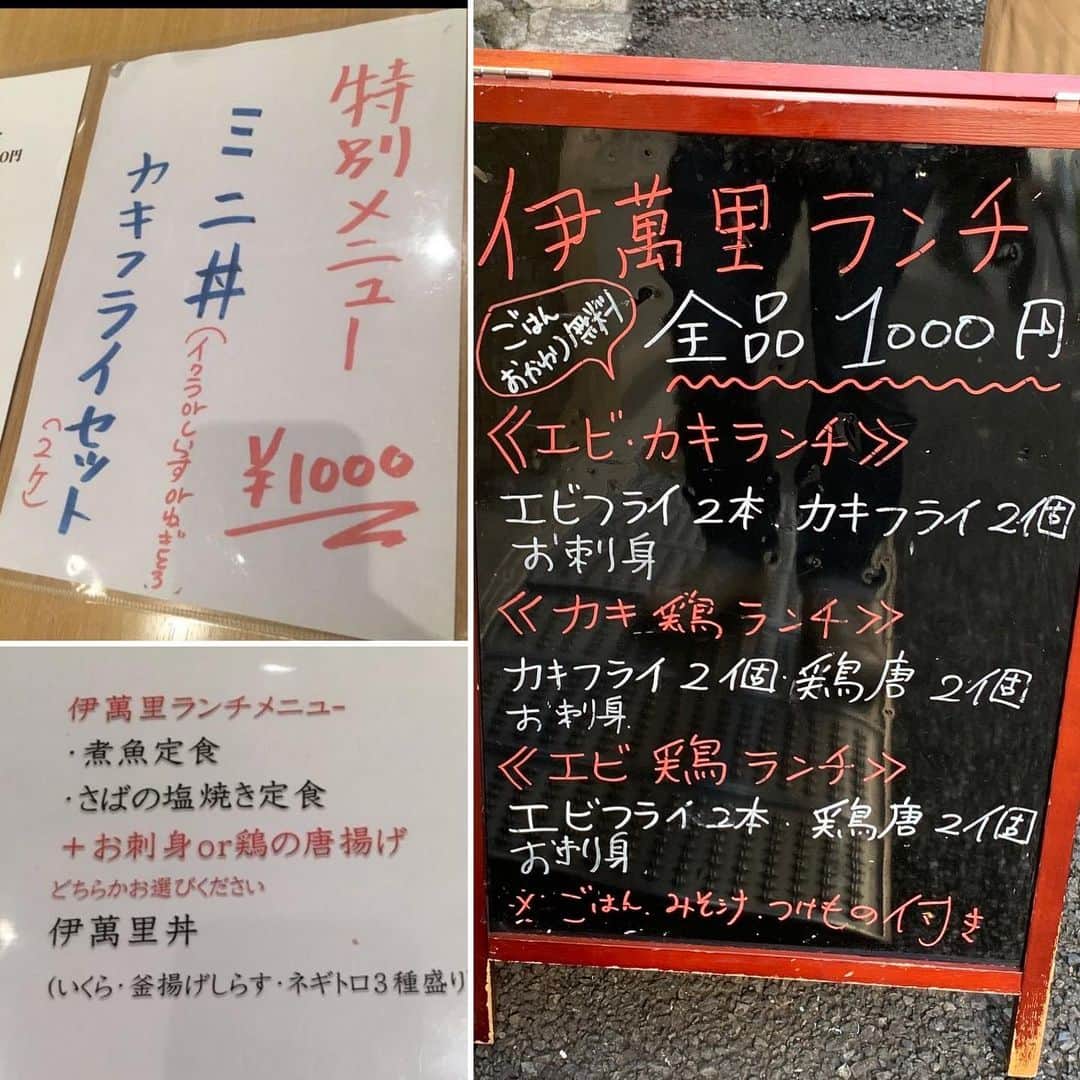 0円
特別メニュー
ミニ丼
(イクラorしらすorねぎとろ)
カキフライセット
(2ケ)
¥1000
伊萬里ランチメニュー
・煮魚定食
・さばの塩焼き定食
+お刺身or鶏の唐揚げ
どちらかお選びください
伊萬里丼
(いくら・釜揚げしらす・ネギトロ3種盛り
伊萬里ランチ
ごはん
おかわり無料
全品 1000円
≪エビ・カキランチ≫
エビフライ2本.カキフライ2個
お刺身
≪カキ鶏ランチ≫
カキフライ2個.鶏唐2個
お刺身
≪エビ鶏ランチ≫
エビフライ2本.鶏唐2個
お刺身
※ごはん.みそ汁.つけもの付き